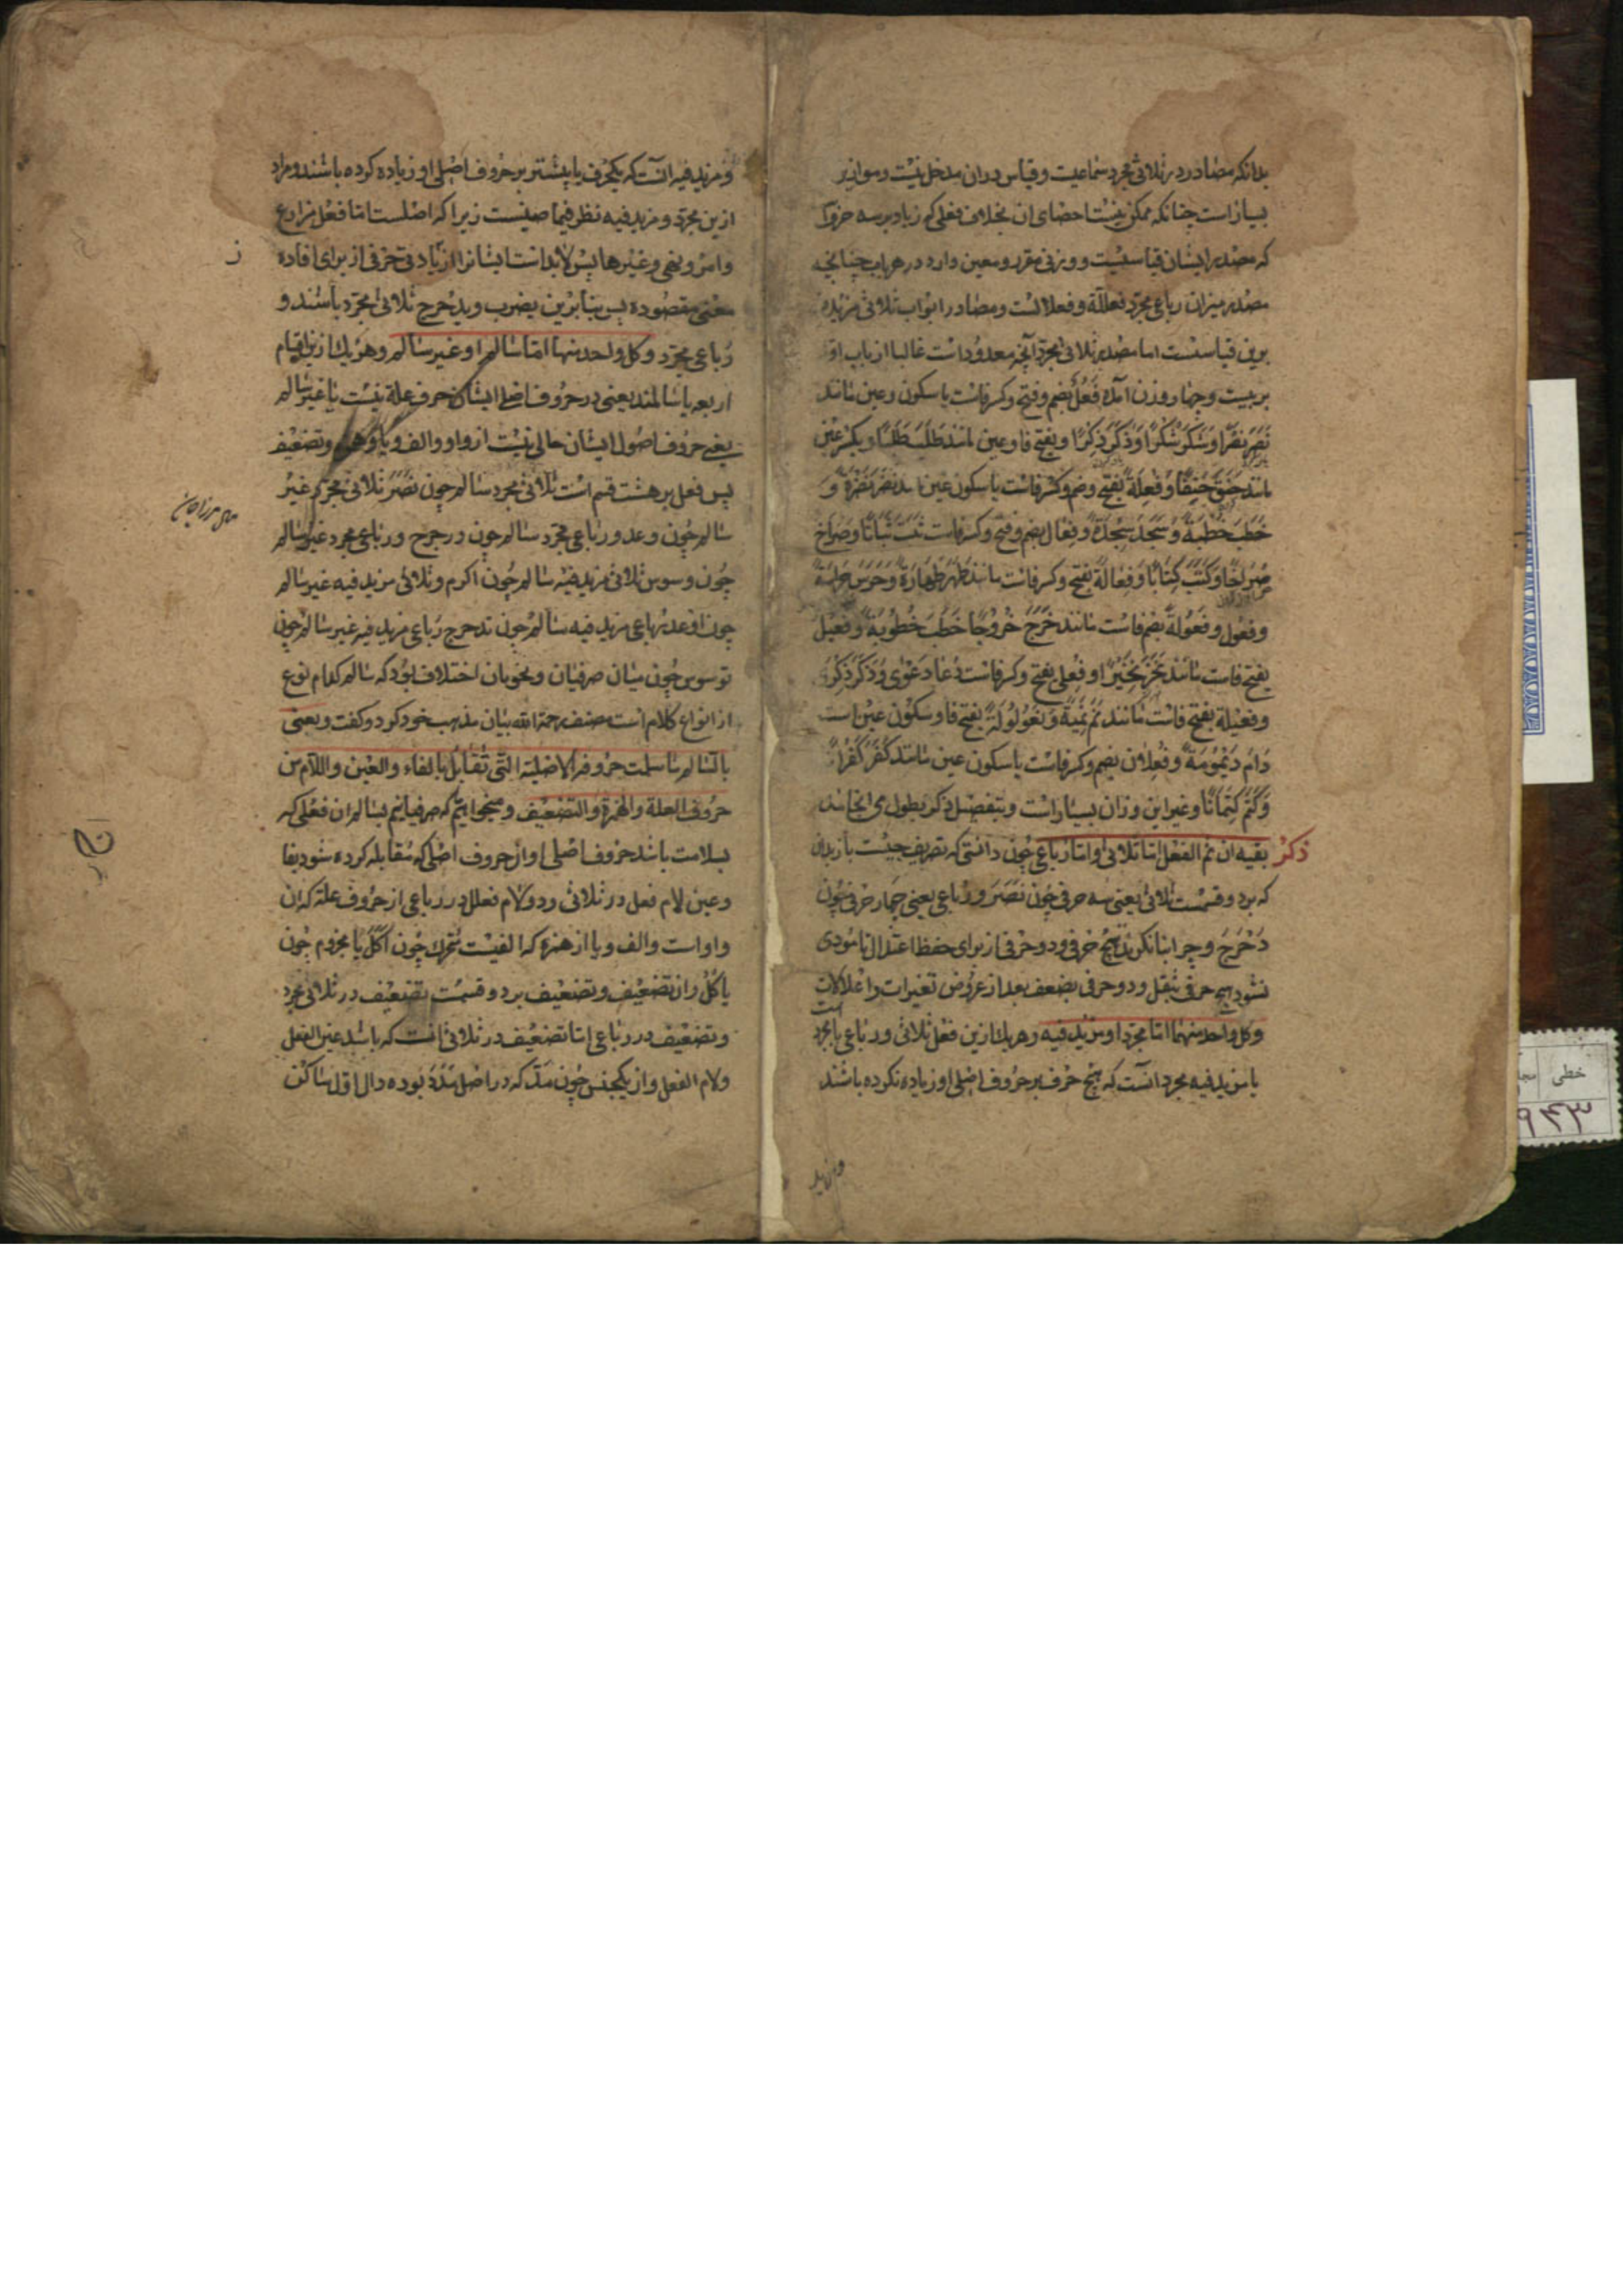 بدانکه مصادر در ثلاثی مجرد سماعیت و قیاس در ان مدخل نیست و موازیر
بسیار است چنانکه ممکن نیست احصای ان بخلاف فعلی که زیاد بر سه حرف
که مصدر ایشان قیاسیست و وزنی مقرر و معین دارد در هر باب چنانچه
مصدر میزان رباعی مجرد فعللة و فعلالست و مصادر ابواب ثلاثی مزید
برین قیاسست اما مصدر ثلاثی مجرد آنچه معدود است غالبا از باب او
بر بیست و چهار وزن آمده فعل بضم و فتح و کسر فاست با سکون عین مانند
نَصَرَ نَصْرًا وَشَكَرَ شُكْرًا وَذَكَرَ ذِكْرًا و بفتح فا و عین مانند طَلَبَ طَلَبًا و بکسر عین
مانند خَنَقَ خَنِقًا وَفعلة بفتح و ضم و کسر فاست با سکون عین مانند نَضَرَ نَضْرَةً وَ
خَطَبَ خُطْبَةً وَ سَجَدَ سِجْدَةً و فعال بضم و فتح و کسر فاست ثَبَتَ ثَبَاتًا وَصَرَاخَ
صُرَاخًا وَكَتَبَ كِتَابًا وَفعالة بفتح و کسر فاست مانند طَهَرَ طَهَارَةً وَحَرَسَ حِرَاسَةً
و فعول و فعولة بضم فاست مانند خَرَجَ خُرُوجًا خَطَبَ خُطُوبَةً و فعیل
بفتح فاست مانند نَخَرَ نَخِيرًا و فعلی بفتح و کسر فاست دَعَا دَعْوٰى وَذَكَرَ ذِكْرٰى
و فعیلة بفتح فاست مانند نَمَّ نَمِيمَةً وَ فعلولة بفتح فا و سکون عین است
دَامَ دَيْمُومَةً و فعلان بضم و کسر فاست با سکون عین مانند كَفَرَ كُفْرَانًا
وَكَتَمَ كِتْمَانًا و غیر این وزان بسیار است و بتفصیل ذکر بطول می انجامد
ذکر بقیه ان ثم الفعل اما ثلاثی او اما رباعی چون دانستی که تصریف چیست بازبدان
که بر دو قسمست ثلاثی یعنی سه حرفی چون نَصَرَ و رباعی یعنی چهار حرفی چون
دَحْرَجَ و چرا بنا نکردند پنج حرفی و دو حرفی از برای حفظ اعتدال تا مودی
نشود پنج حرفی بثقل و دو حرفی بضعف بعد از عروض تغیرات و اعلالات است
و کل واحد منهما اما مجرد او مزید فیه و هر یک ازین فعل ثلاثی و رباعی یا مجرد
یا مزید فیه مجرد آنست که هیچ حرف بر حروف اصلی او زیاده نکرده باشند
و مزید
و مزید فیه آنست که یکحرف یا بیشتر بر حروف اصلی او زیاده کرده باشند و مراد
ازین مجرد و مزید فیه نظر فیما ضیست زیرا که اصلست اما فعل مزارع
و امر و نهی و غیر ها پس لابد است ایشانرا از زیادتی حرفی از برای افاده
معنی مقصوده پس بنا برین یضرب و یدحرج ثلاثی مجرد باشند و
رباعی مجرد و کل واحد منها اما سالم او غیر سالم و هر یک ازین اقسام
اربعه یا سالمند یعنی در حروف اصلی ایشان حرف علة نیست یا غیر سالم
یعنی حروف اصول ایشان خالی نیست از واو و الف و یا و همزه و تضعیف
پس فعل بر هشت قسم است ثلاثی مجرد سالم چون نَصَرَ ثلاثی مجرد غیر
سالم چون وعد و رباعی مجرد سالم چون درجح و رباعی مجرد غیر سالم
چون وسوس ثلاثی مزید فیه سالم چون اکرم و ثلاثی مزید فیه غیر سالم
چون اوعد رباعی مزید فیه سالم چون تدحرج رباعی مزید فیه غیر سالم چون
توسوس چون میان صرفیان و نحویان اختلاف بود که سالم کدام نوع
از انواع کلام است مصنف رحمة الله بیان مذهب خود کرد و گفت و یعنی
بالسالم ما سلمت حروفه الاصلیة التی تقابل بالفاء و العین و اللام من
حروف العلة و الهمزة و التضعیف و میخواهیم که صرفیانیم بسالم ان فعلی که
بسلامت باشد حروف اصلی او از حروف اصلی که مقابله کرده شود بفا
و عین لام فعل در ثلاثی و دو لام فعلل در رباعی از حروف علة که ان
واو است و الف و یا از همزه که الفیست متحرک چون اَکَلَ یا مجزوم چون
یاکل و از تضعیف و تضعیف بر دو قسمست تضعیف در ثلاثی مجرد
و تضعیف در رباعی اما تضعیف در ثلاثی انست که باشد عین الفعل
و لام الفعل و از یکجنس چون مَدَّ که در اصل مَدَدَ بوده دال اول ساکن
خطی
۹۴۳